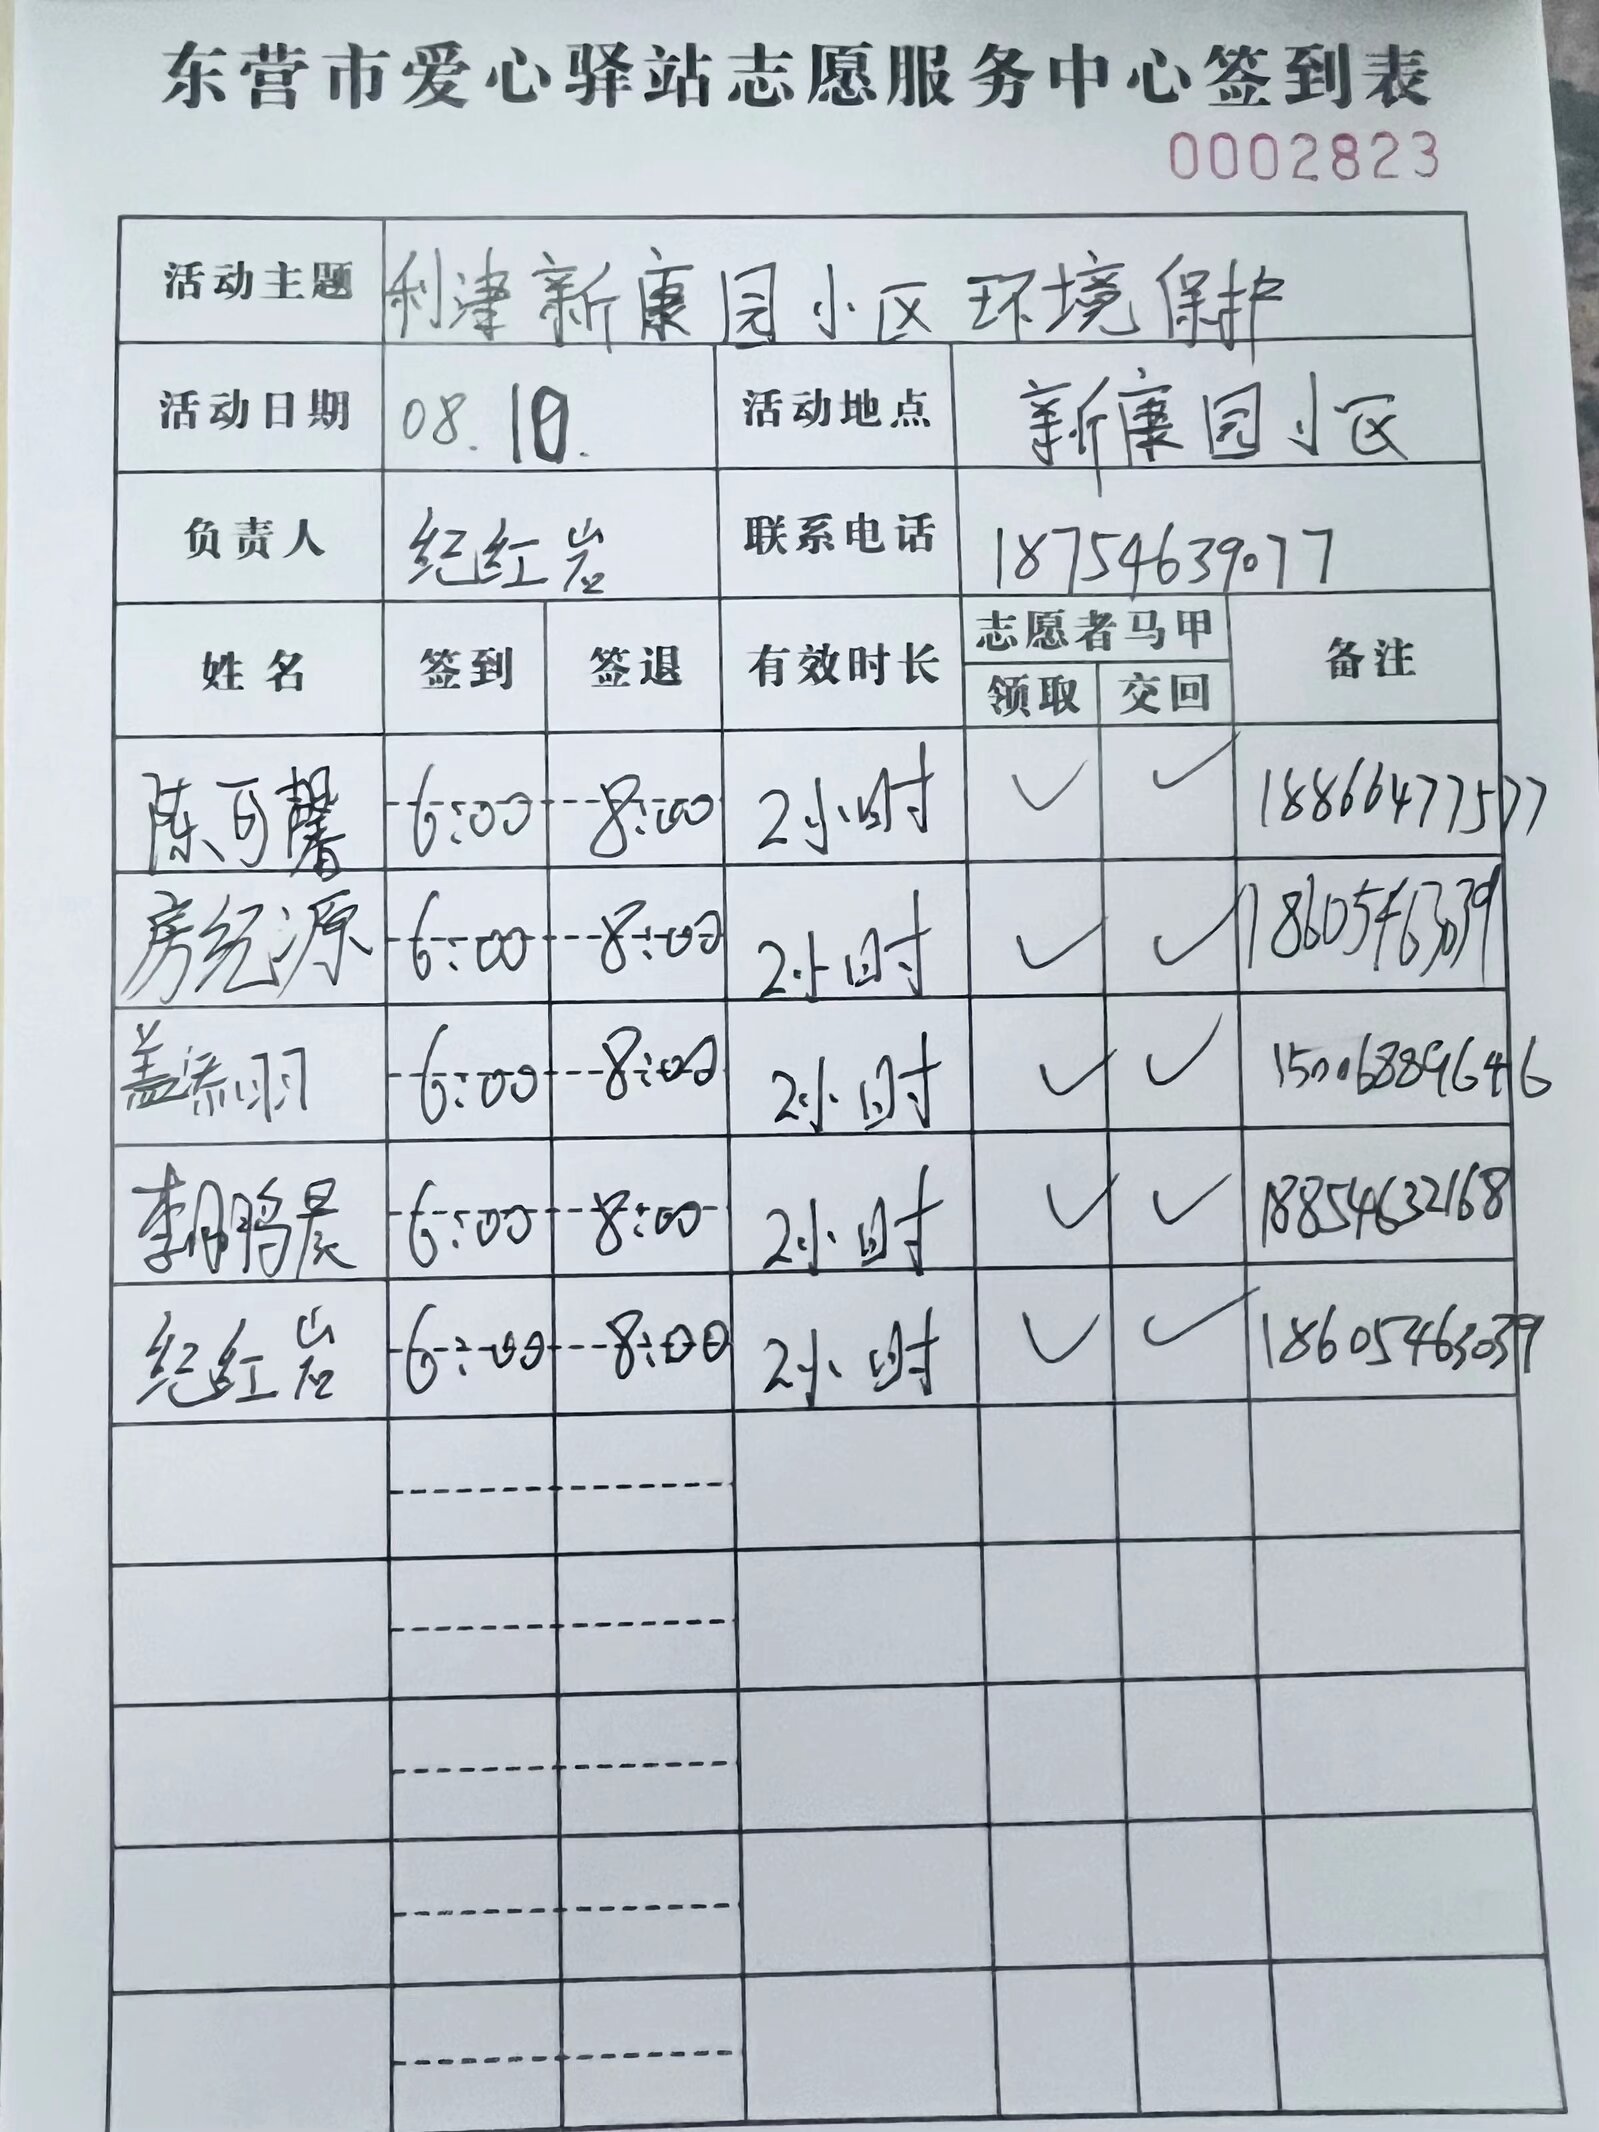 东营市爱心驿站志愿服务中心签到表
0002823
活动主题 利津新康园小区环境保护
活动日期 08.10. 活动地点 新康园小区
负责人 纪红岩 联系电话 18754639077
姓名 签到 签退 有效时长 志愿者马甲 备注
领取 交回
陈可馨 6:00 8:00 2小时 ✓ ✓ 18866477577
房纪源 6:00 8:00 2小时 ✓ ✓ 18605463039
盖添羽 6:00 8:00 2小时 ✓ ✓ 15006889646
李鹏晨 6:00 8:00 2小时 ✓ ✓ 18854632168
纪红岩 6:00 8:00 2小时 ✓ ✓ 18605463039